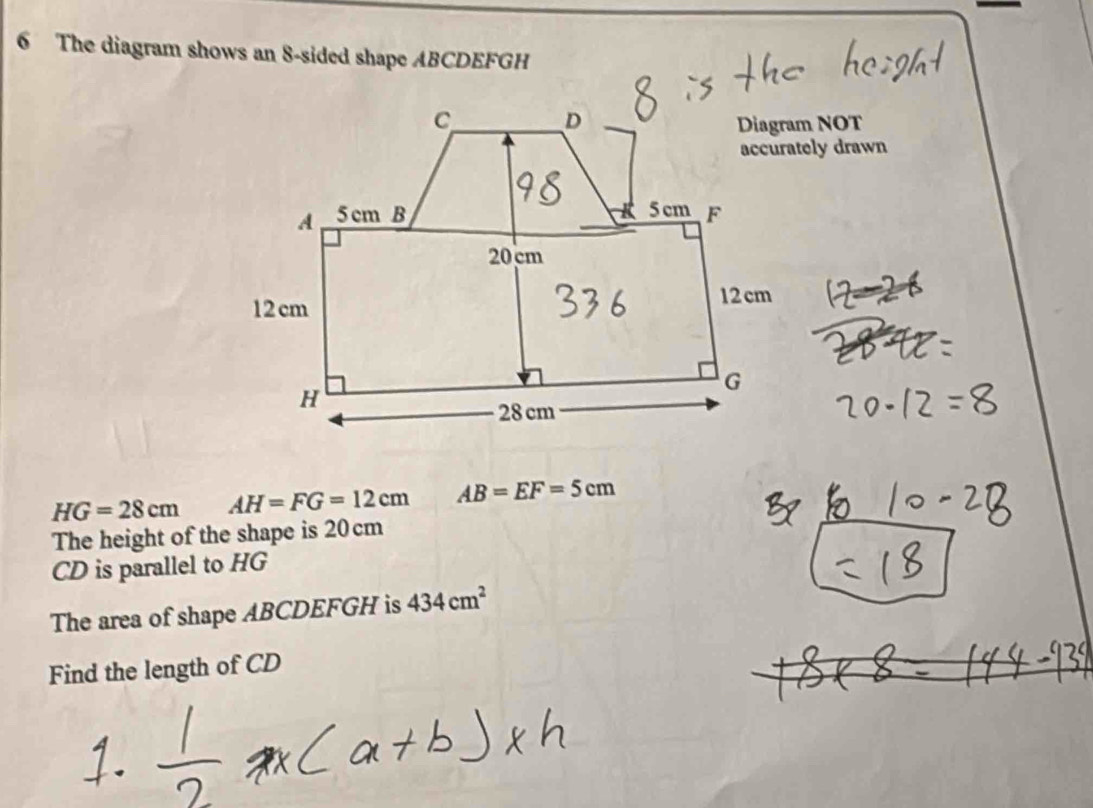 6 The diagram shows an 8-sided shape ABCDEFGH
8 is the height
C D
Diagram NOT
accurately drawn
98
A 5 cm B 5 cm F
20 cm
12 cm 336 12 cm
12-28
H G
28 cm
20-12=8
HG = 28 cm AH = FG = 12 cm AB = EF = 5 cm
10-28
The height of the shape is 20 cm
CD is parallel to HG
=18
The area of shape ABCDEFGH is 434 cm²
Find the length of CD
18x8=144-434
1. 1/2 x(a+b)xh